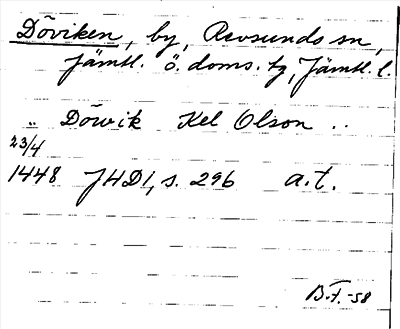 Döviken, by, Revsunds sn,
Jämtl. ö. doms. tg, Jämtl. l.
.. Döwik Kel Olson ..
23/4
1448 JHD1, s. 296 a.t.
B.F. -58